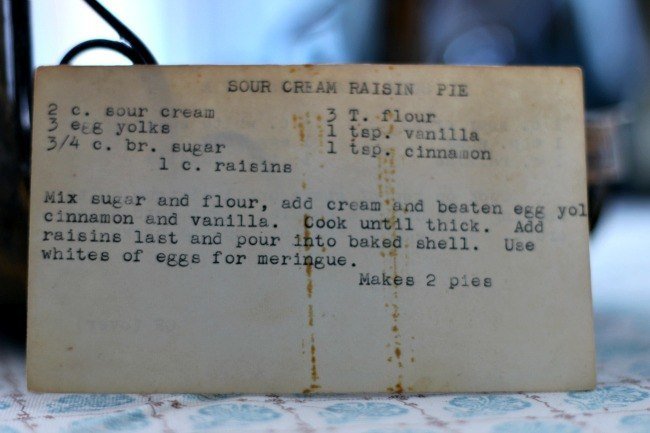 SOUR CREAM RAISIN PIE
2 c. sour cream 3 T. flour
3 egg yolks 1 tsp. vanilla
3/4 c. br. sugar 1 tsp. cinnamon
1 c. raisins
Mix sugar and flour, add cream and beaten egg yol
cinnamon and vanilla. Cook until thick. Add
raisins last and pour into baked shell. Use
whites of eggs for meringue.
Makes 2 pies